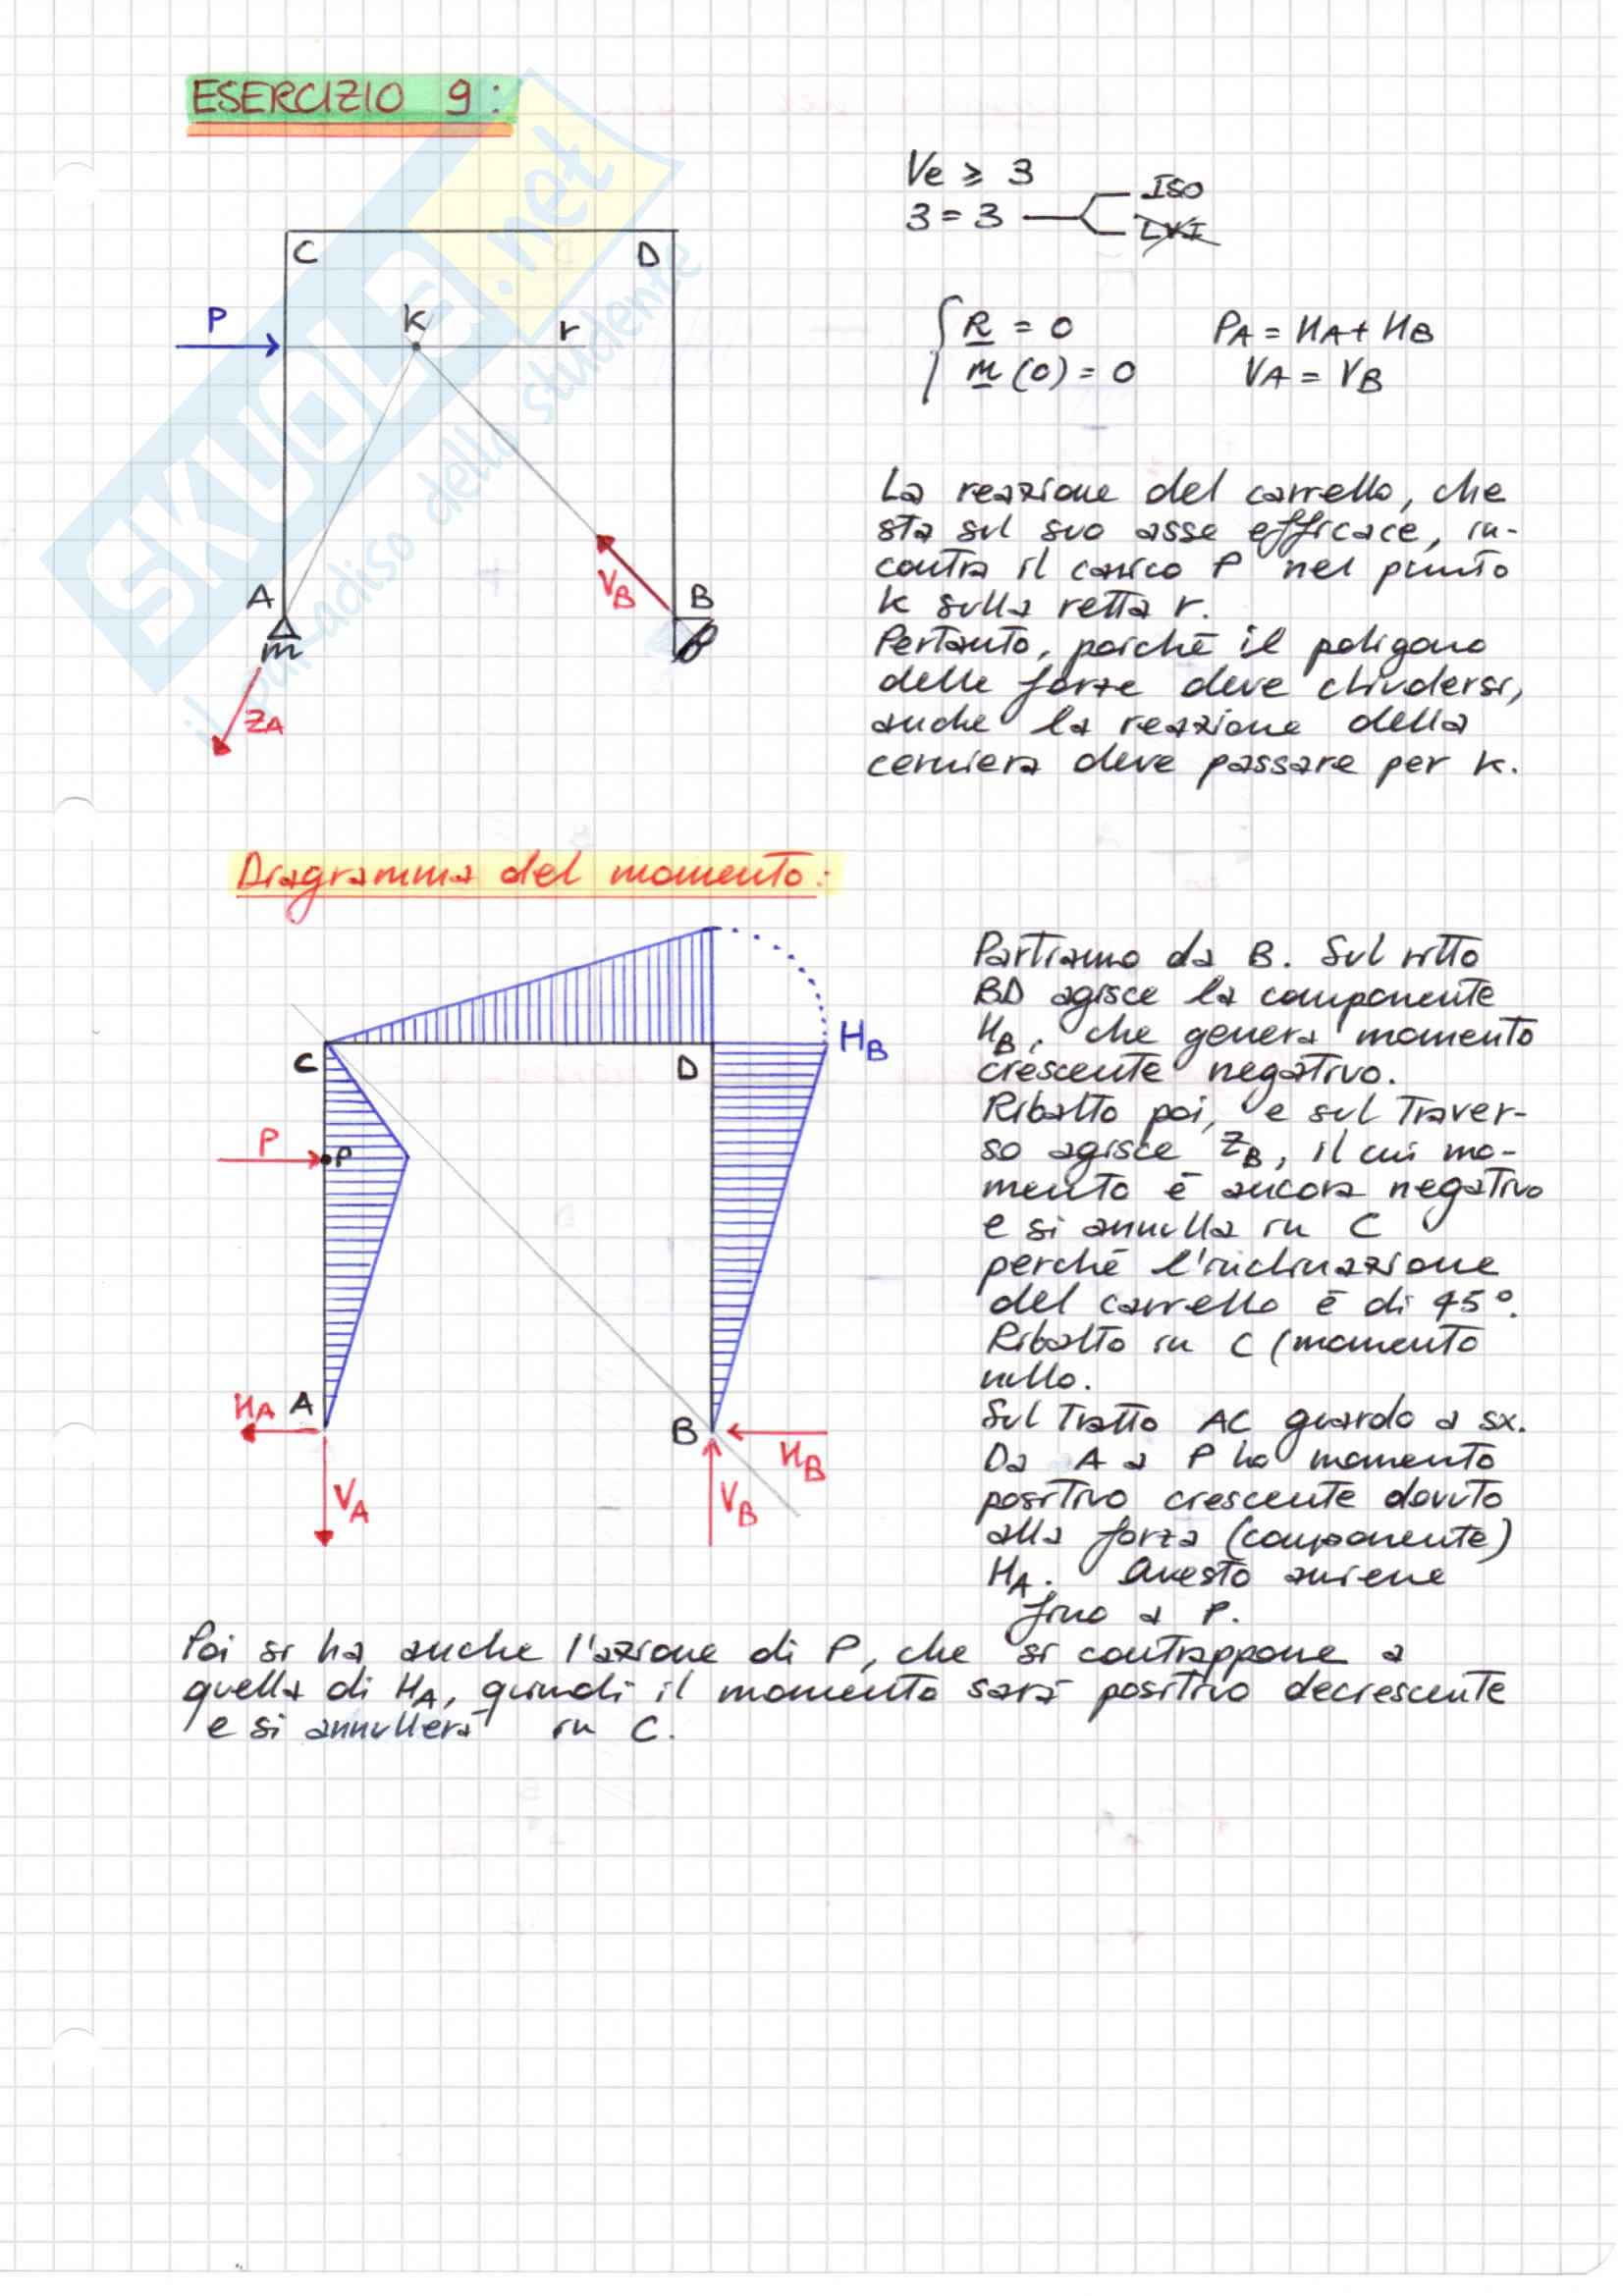 ESERCIZIO 9:
Ve ≥ 3
3 = 3 ISO
LVI
C D
P K r
A B
VB
ZA
R = 0 PA = HA + HB
m (0) = 0 VA = VB
La reazione del carrello, che
sta sul suo asse efficace, in-
contra il carico P nel punto
K sulla retta r.
Pertanto, poichè il poligono
delle forze deve chiudersi,
anche la reazione della
cerniera deve passare per K.
SKUOLA.net
il paradiso dello studente
Diagramma del momento:
C D HB
P P
HA A B HB
VA VB
Partiamo da B. Sul ritto
BD agisce la componente
HB, che genera momento
crescente negativo.
Ribalto poi, e sul traver-
so agisce ZB, il cui mo-
mento è ancora negativo
e si annulla in C
perché l'inclinazione
del carrello è di 45°.
Ribalto in C (momento
nullo.
Sul tratto AC guardo a sx.
Da A a P ho momento
positivo crescente dovuto
alla forza (componente)
HA. Questo avviene
fino a P.
Poi si ha anche l'azione di P, che si contrappone a
quella di HA, quindi il momento sarà positivo decrescente
e si annullerà in C.